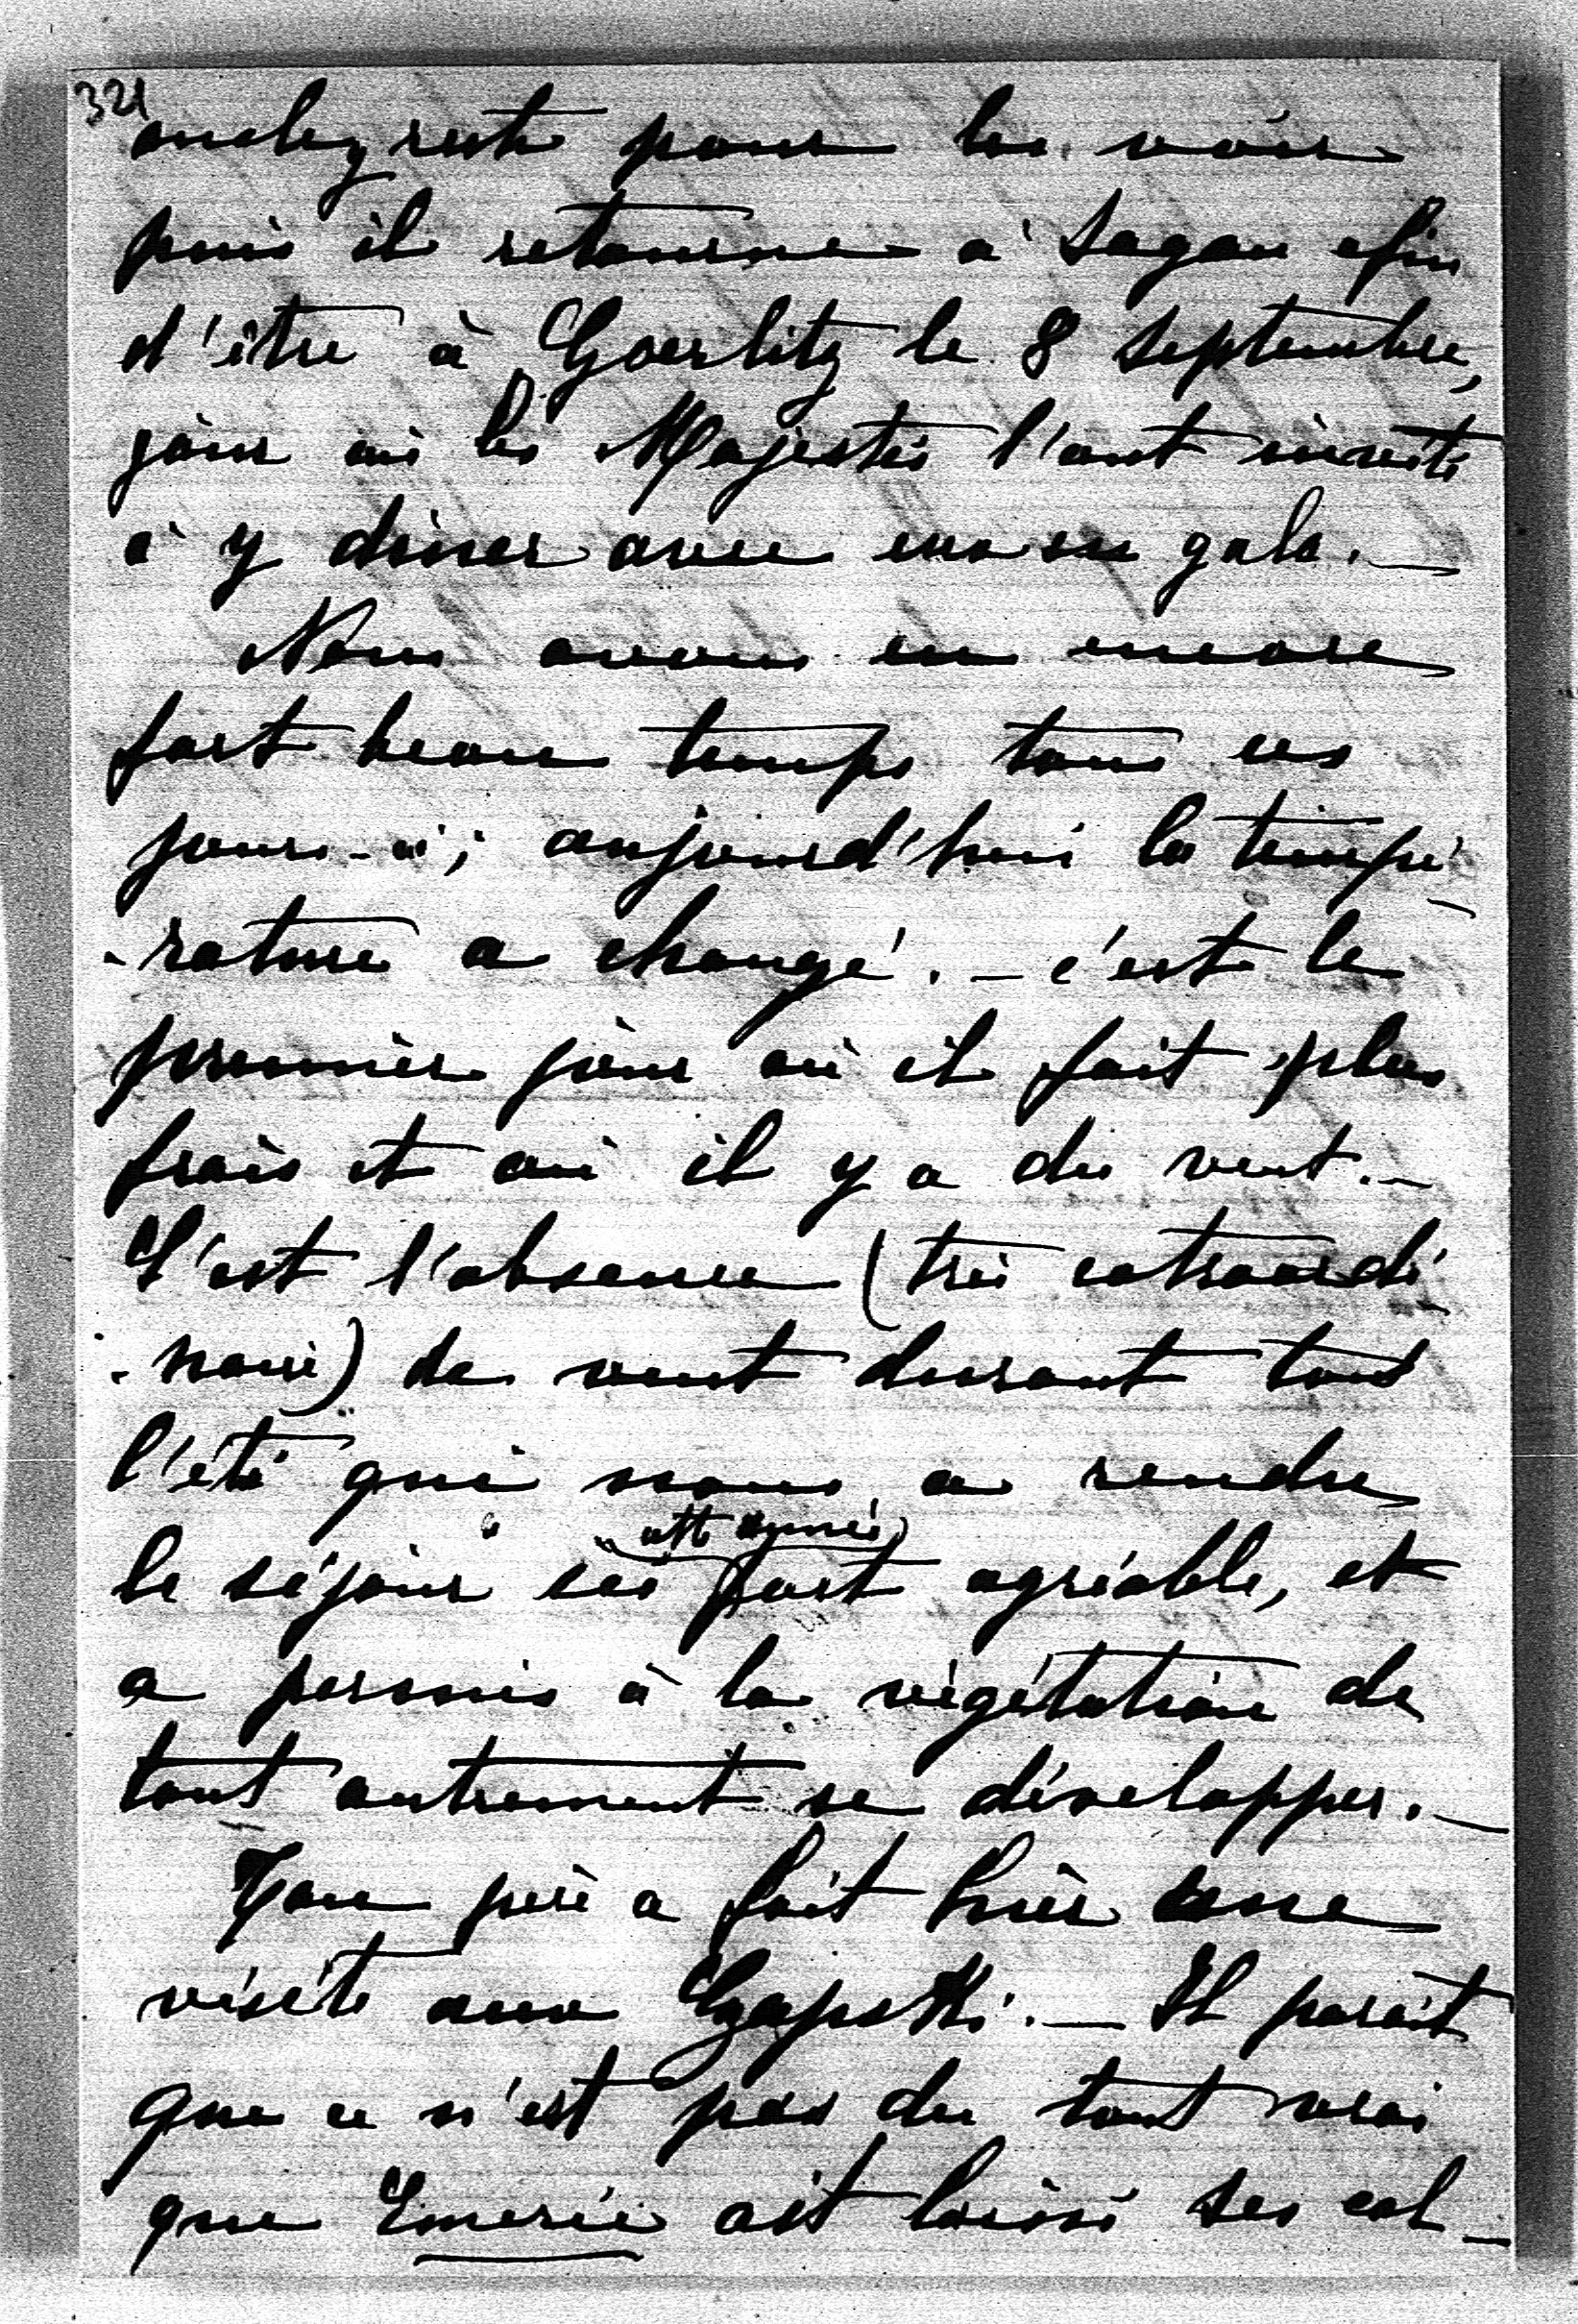 321
reste pour les voir
puis il retourne à Sagan afin
d'être à Goerlitz le 8 Septembre,
jour où les Majestés l'ont invité
à y dîner avec eux en gala. —
Nous avons eu encore
fort beau temps tous ces
jours-ci; aujourd'hui la tempé-
-rature a changé. — c'est le
premier jour où il fait plus
frais et où il y a du vent. —
C'est l'absence (très extraordi-
-naire) de vent durant tout
l'été qui nous a rendu
cette année
le séjour ici fort agréable, et
a permis à la végétation de
tout autrement se développer. —
Ton père a fait hier une
visite aux Czapski. — Il paraît
que ce n'est pas du tout vrai
que Emeric ait laissé ses col-